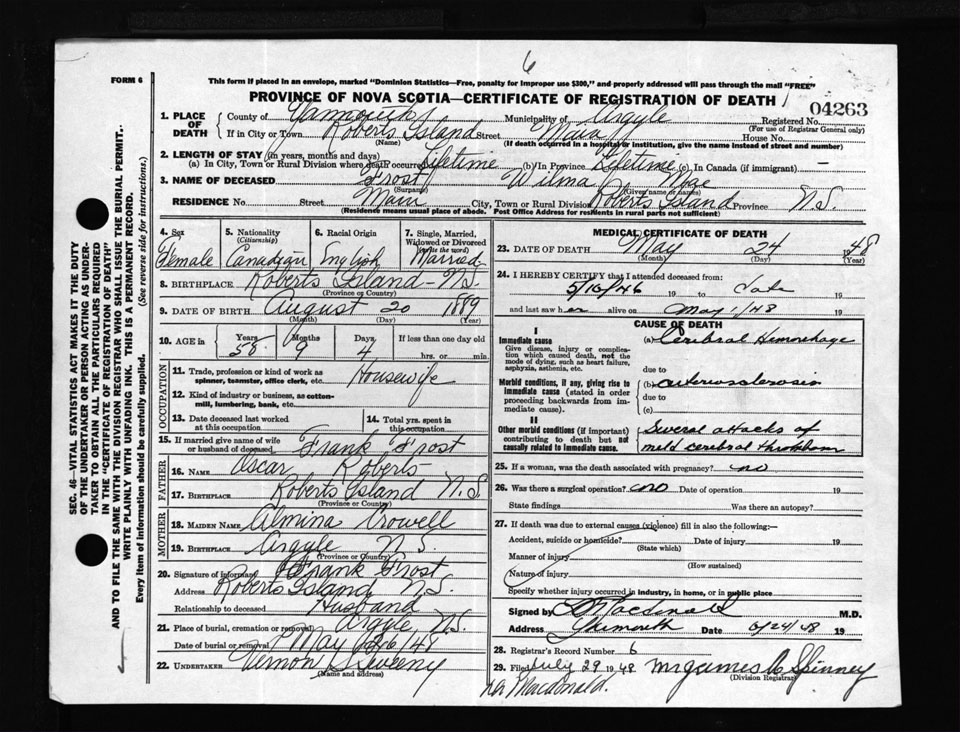 6
FORM 6
This form if placed in an envelope, marked "Dominion Statistics—Free, penalty for improper use $300," and properly addressed will pass through the mail "FREE"
PROVINCE OF NOVA SCOTIA—CERTIFICATE OF REGISTRATION OF DEATH
04263
1. PLACE OF DEATH
County of Yarmouth Municipality of Argyle Registered No.
(For use of Registrar General only)
If in City or Town Roberts Island Street Main House No.
(Name) (If death occurred in a hospital or institution, give the name instead of street and number)
2. LENGTH OF STAY (in years, months and days)
(a) In City, Town or Rural Division where death occurred Lifetime (b) In Province Lifetime (c) In Canada (if immigrant) —
3. NAME OF DECEASED Frost Wilma Mae
(Surname) (Given name or names)
RESIDENCE No. Street Main City, Town or Rural Division Roberts Island Province N.S.
(Residence means usual place of abode. Post Office Address for residents in rural parts not sufficient)
4. Sex Female
5. Nationality (Citizenship) Canadian
6. Racial Origin English
7. Single, Married, Widowed or Divorced (write the word) Married
8. BIRTHPLACE Roberts Island - N.S.
(Province or Country)
9. DATE OF BIRTH August 20 1889
(Month) (Day) (Year)
10. AGE in Years 58 Months 9 Days 4 If less than one day old
hrs. or min.
OCCUPATION
11. Trade, profession or kind of work as spinner, teamster, office clerk, etc. Housewife
12. Kind of industry or business, as cotton-mill, lumbering, bank, etc.
13. Date deceased last worked at this occupation
14. Total yrs. spent in this occupation
15. If married give name of wife or husband of deceased Frank Frost
FATHER
16. NAME Oscar Roberts
17. BIRTHPLACE Roberts Island N.S.
(Province or Country)
MOTHER
18. MAIDEN NAME Almina Crowell
19. BIRTHPLACE Argyle N.S.
(Province or Country)
20. Signature of informant Frank Frost
Address Roberts Island N.S.
Relationship to deceased Husband
21. Place of burial, cremation or removal Argyle N.S.
Date of burial or removal May 26 '48
22. UNDERTAKER Vernon Sweeny
(Name and address)
MEDICAL CERTIFICATE OF DEATH
23. DATE OF DEATH May 24 1948
(Month) (Day) (Year)
24. I HEREBY CERTIFY that I attended deceased from:
5/10/46 19 to date 19
and last saw her alive on May 1/48 19
CAUSE OF DEATH
I
Immediate cause
Give disease, injury or complication which caused death, not the mode of dying, such as heart failure, asphyxia, asthenia, etc.
(a) Cerebral Hemorrhage
due to
Morbid conditions, if any, giving rise to immediate cause (stated in order proceeding backwards from immediate cause).
(b) arteriosclerosis
due to
(c)
II
Other morbid conditions (if important) contributing to death but not causally related to immediate cause.
Several attacks of
mild cerebral
25. If a woman, was the death associated with pregnancy? no
26. Was there a surgical operation? no Date of operation 19
State findings Was there an autopsy?
27. If death was due to external causes (violence) fill in also the following:—
Accident, suicide or homicide? Date of injury 19
(State which)
Manner of injury
(How sustained)
Nature of injury
Specify whether injury occurred in industry, in home, or in public place
Signed by Macdonald M.D.
Address Yarmouth Date 5/24/48 19
28. Registrar's Record Number 6
29. Filed July 29 1948 Mrs James C Spinney
(Division Registrar)
Macdonald.
SEC. 46—VITAL STATISTICS ACT MAKES IT THE DUTY
OF THE UNDERTAKER OR PERSON ACTING AS UNDER-
TAKER TO OBTAIN ALL THE PARTICULARS REQUIRED
IN THE "CERTIFICATE OF REGISTRATION OF DEATH"
AND TO FILE THE SAME WITH THE DIVISION REGISTRAR WHO SHALL ISSUE THE BURIAL PERMIT.
WRITE PLAINLY WITH UNFADING INK. THIS IS A PERMANENT RECORD.
Every item of information should be carefully supplied. (See reverse side for instructions.)